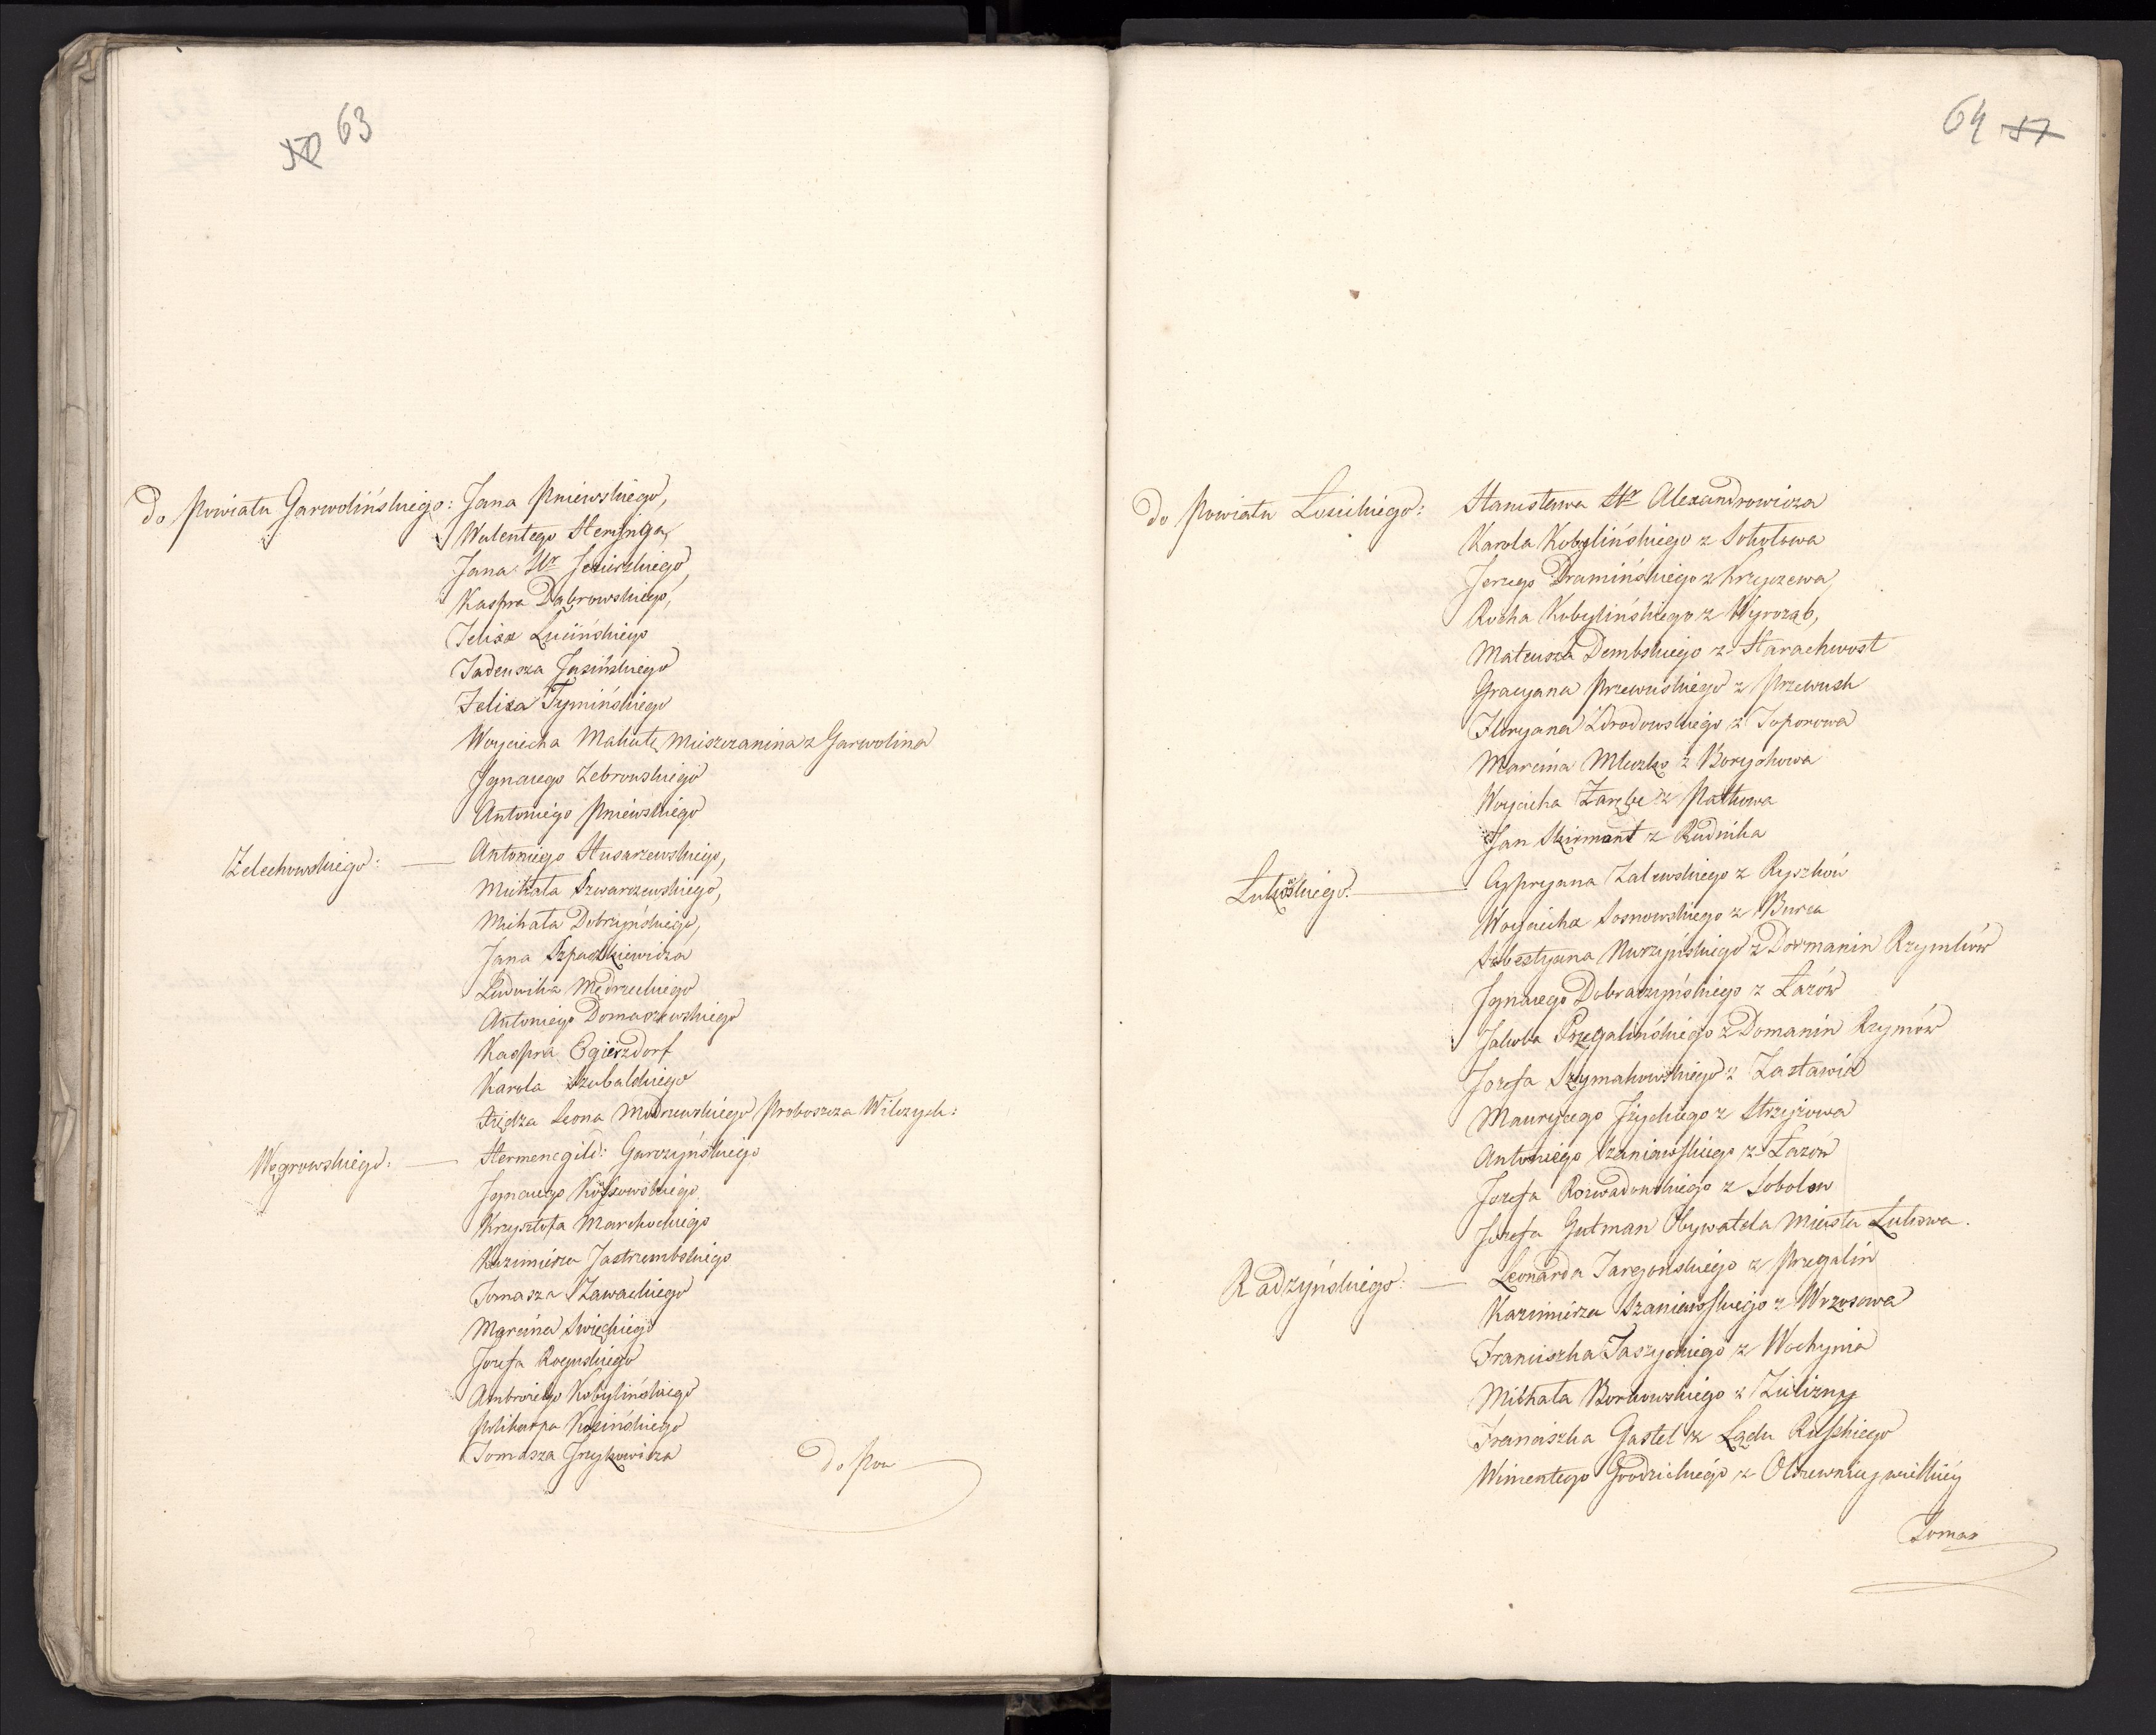 50 63
do Powiatu Garwolińskiego: Jana Pniewskiego,
Walentego Herynga,
Jana Hr Jezierskiego,
Kaspra Dąbrowskiego,
Felixa Lucińskiego
Tadeusza Jasińskiego
Felixa Tymińskiego
Woyciecha Makułę Mieszczanina z Garwolina
Ignacego Zebrowskiego
Antoniego Pniewskiego
Żelechowskiego: Antoniego Husarzewskiego,
Michała Szwarczewskiego,
Michała Dobrzyńskiego,
Jana Szpaczkiewicza
Ludwika Mędrzeckiego
Antoniego Domaszewskiego
Kaspra Ogierzdorf
Karola Szubalskiego
Xiędza Leona Modzewskiego Proboszcza Wilczysk:
Węgrowskiego: Hermenegild: Garczyńskiego
Ignacego Kossowskiego
Krzysztofa Marchockiego
Kazimierza Jastrzembskiego
Tomasza Zawadzkiego
Marcina Swięckiego
Jozefa Roguskiego
Ambrożego Kobylińskiego
Polikarpa Kosińskiego
Tomasza Irzykowicza
do Pow
64 57
do Powiatu Łosickiego: Stanisława Hr Alexandrowicza
Karola Kobylińskiego z Sokołowa
Jerzego Dramińskiego z Krzyczewa,
Rocha Kobylińskiego z Wyroząb,
Mateusza Dembskiego z Starachwost
Gracyana Przewuskiego z Przewusk
Floryana Zdrodowskiego z Toporowa
Marcina Mleczko z Borychowa
Woyciecha Zarębę z Patkowa
Jan Skirmont z Rudnika
Łukowskiego: Cypryana Zalewskiego z Ryszków
Woyciecha Sosnowskiego z Burca
Sebestyana Nurzyńskiego z Dormanin Rzymków
Ignacego Dobraczyńskiego z Łazów
Jakoba Przegalińskiego z Domanin Rzymów
Jozefa Szymakowskiego z Zastawia
Maurycego Iżyckiego z Strzyżowa
Antoniego Szaniawskiego z Łazów
Jozefa Rozwadowskiego z Sobolew
Jozefa Gutman Obywatela Miasta Łukowa.
Radzyńskiego: Leonarda Jargonskiego z Przegalin
Kazimierza Szaniawskiego z Wrzosowa
Franciszka Taszyckiego z Wochynia
Michała Borkowskiego z Zulizny
Franciszka Gastel z Lądu Ruskiego
Wincentego Grodzickiego z Olszewnicy wielkiéy
Tomas